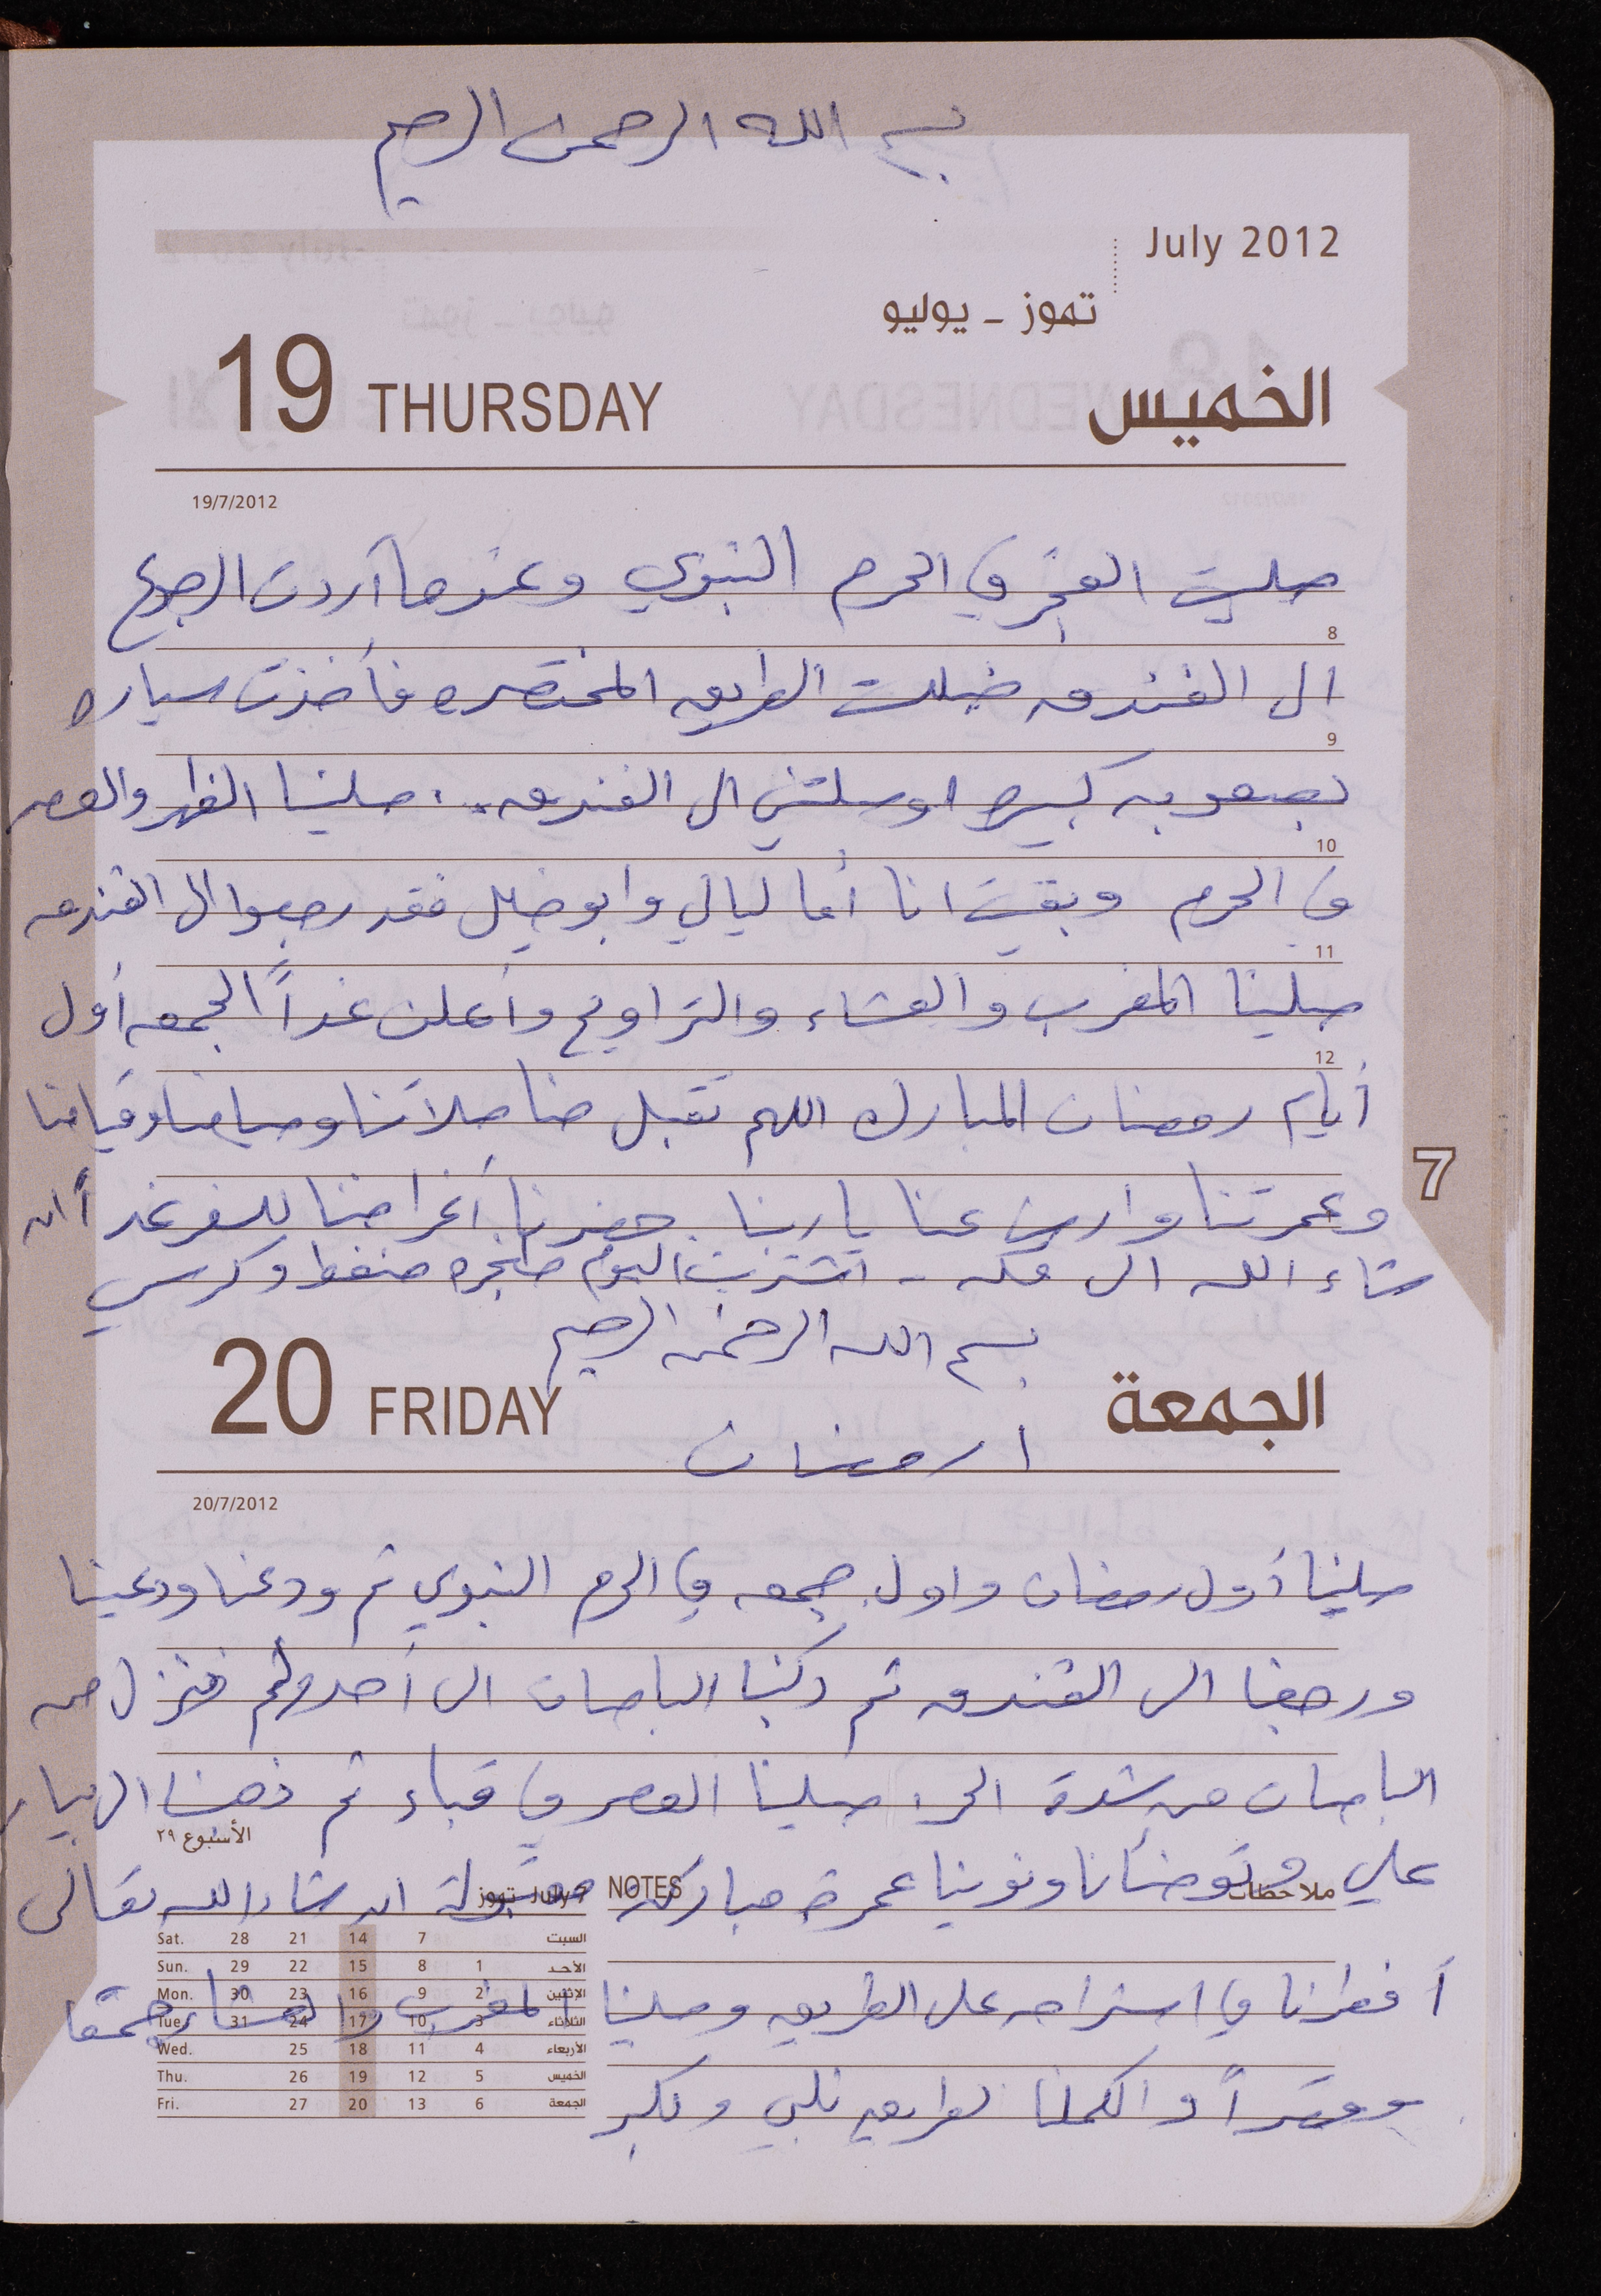 بسم الله الرحمن الرحيم
July 2012
تموز - يوليو
19 THURSDAY الخميس
19/7/2012
صليت الفجر في الحرم النبوي وعندما أردت الرجوع
8
الى الفندق ضيلت الطريق المختصره فأخذت سياره
9
بصعوبه كبيره اوصلتني الى الفندق . صلينا الظهر والعصر
10
في الحرم وبقيت انا أما ليالي وابو خليل فقد رجعوا الى الفندق
11
صلينا المغرب والعشاء والتراويح وأعلن غداً الجمعه أول
12
أيام رمضان المبارك اللهم تقبل منا صلاتنا وصيامنا وقيامنا
7
وعمرتنا وارض عنا ياربنا حضرنا أغراضنا للسفر غداً ان
شاء الله الى مكه - اشتريت اليوم طنجره ضغط وكرسي
بسم الله الرحمن الرحيم
20 FRIDAY الجمعة
١ رمضان
20/7/2012
صلينا أول رمضان واول جمعه في الحرم النبوي ثم ودعنا ودعينا
ورجعنا الى الفندق ثم ركبنا الباصات الى أحد ولم ننزل من
الباصات من شدة الحر. صلينا العصر في قباء ثم ذهبنا الى بيار
الأسبوع ٢٩
علي وتوضأنا ونوينا عمرة مباركه مقبولة ان شاء الله تعالى
ملاحظات NOTES
تموز July 7
Sat. 28 21 14 7 السبت
Sun. 29 22 15 8 1 الأحد
Mon. 30 23 16 9 2 الإثنين
أفطرنا في استراحه على الطريق وصلينا المغرب والعشاء جمعا
Tue. 31 24 17 10 3 الثلاثاء
Wed. 25 18 11 4 الأربعاء
Thu. 26 19 12 5 الخميس
Fri. 27 20 13 6 الجمعة
وقصراً واكملنا طريق نلبي ونكبر